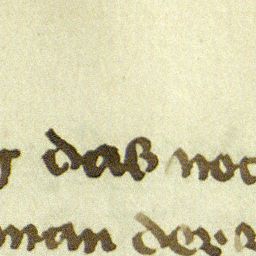 daß noc
man der